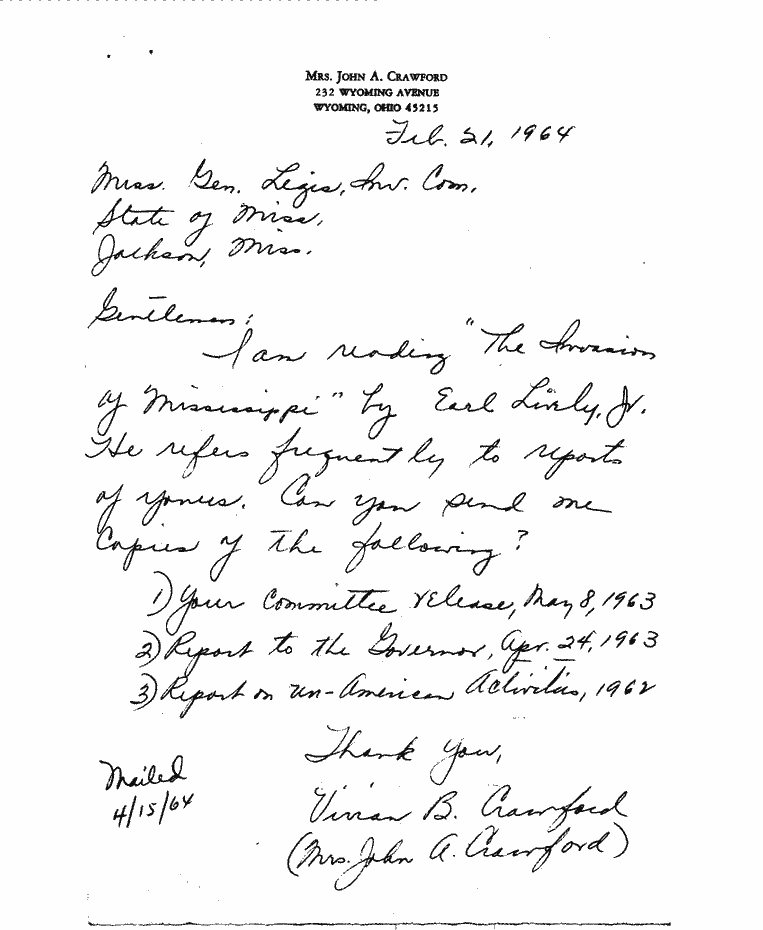 MRS. JOHN A. CRAWFORD
232 WYOMING AVENUE
WYOMING, OHIO 45215
Feb. 21, 1964
Miss. Gen. Legis. Inv. Com.
State of Miss.
Jackson, Miss.
Gentlemen:
I am reading "The Invasion
of Mississippi" by Earl Lively, Jr.
He refers frequently to reports
of yours. Can you send me
copies of the following?
1) Your Committee release, May 8, 1963
2) Report to the Governor, Apr. 24, 1963
3) Report on un-American Activities, 1962
Thank you,
Mailed
4/15/64
Vivian B. Crawford
(Mrs. John A. Crawford)